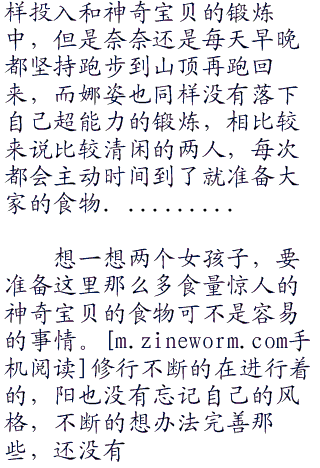 样投入和神奇宝贝的锻炼
中，但是奈奈还是每天早晚
都坚持跑步到山顶再跑回
来，而娜姿也同样没有落下
自己超能力的锻炼，相比较
来说比较清闲的两人，每次
都会主动时间到了就准备大
家的食物．．．．．．．．．
想一想两个女孩子，要
准备这里那么多食量惊人的
神奇宝贝的食物可不是容易
的事情。[m.zineworm.com手
机阅读]修行不断的在进行着
的，阳也没有忘记自己的风
格，不断的想办法完善那
些，还没有